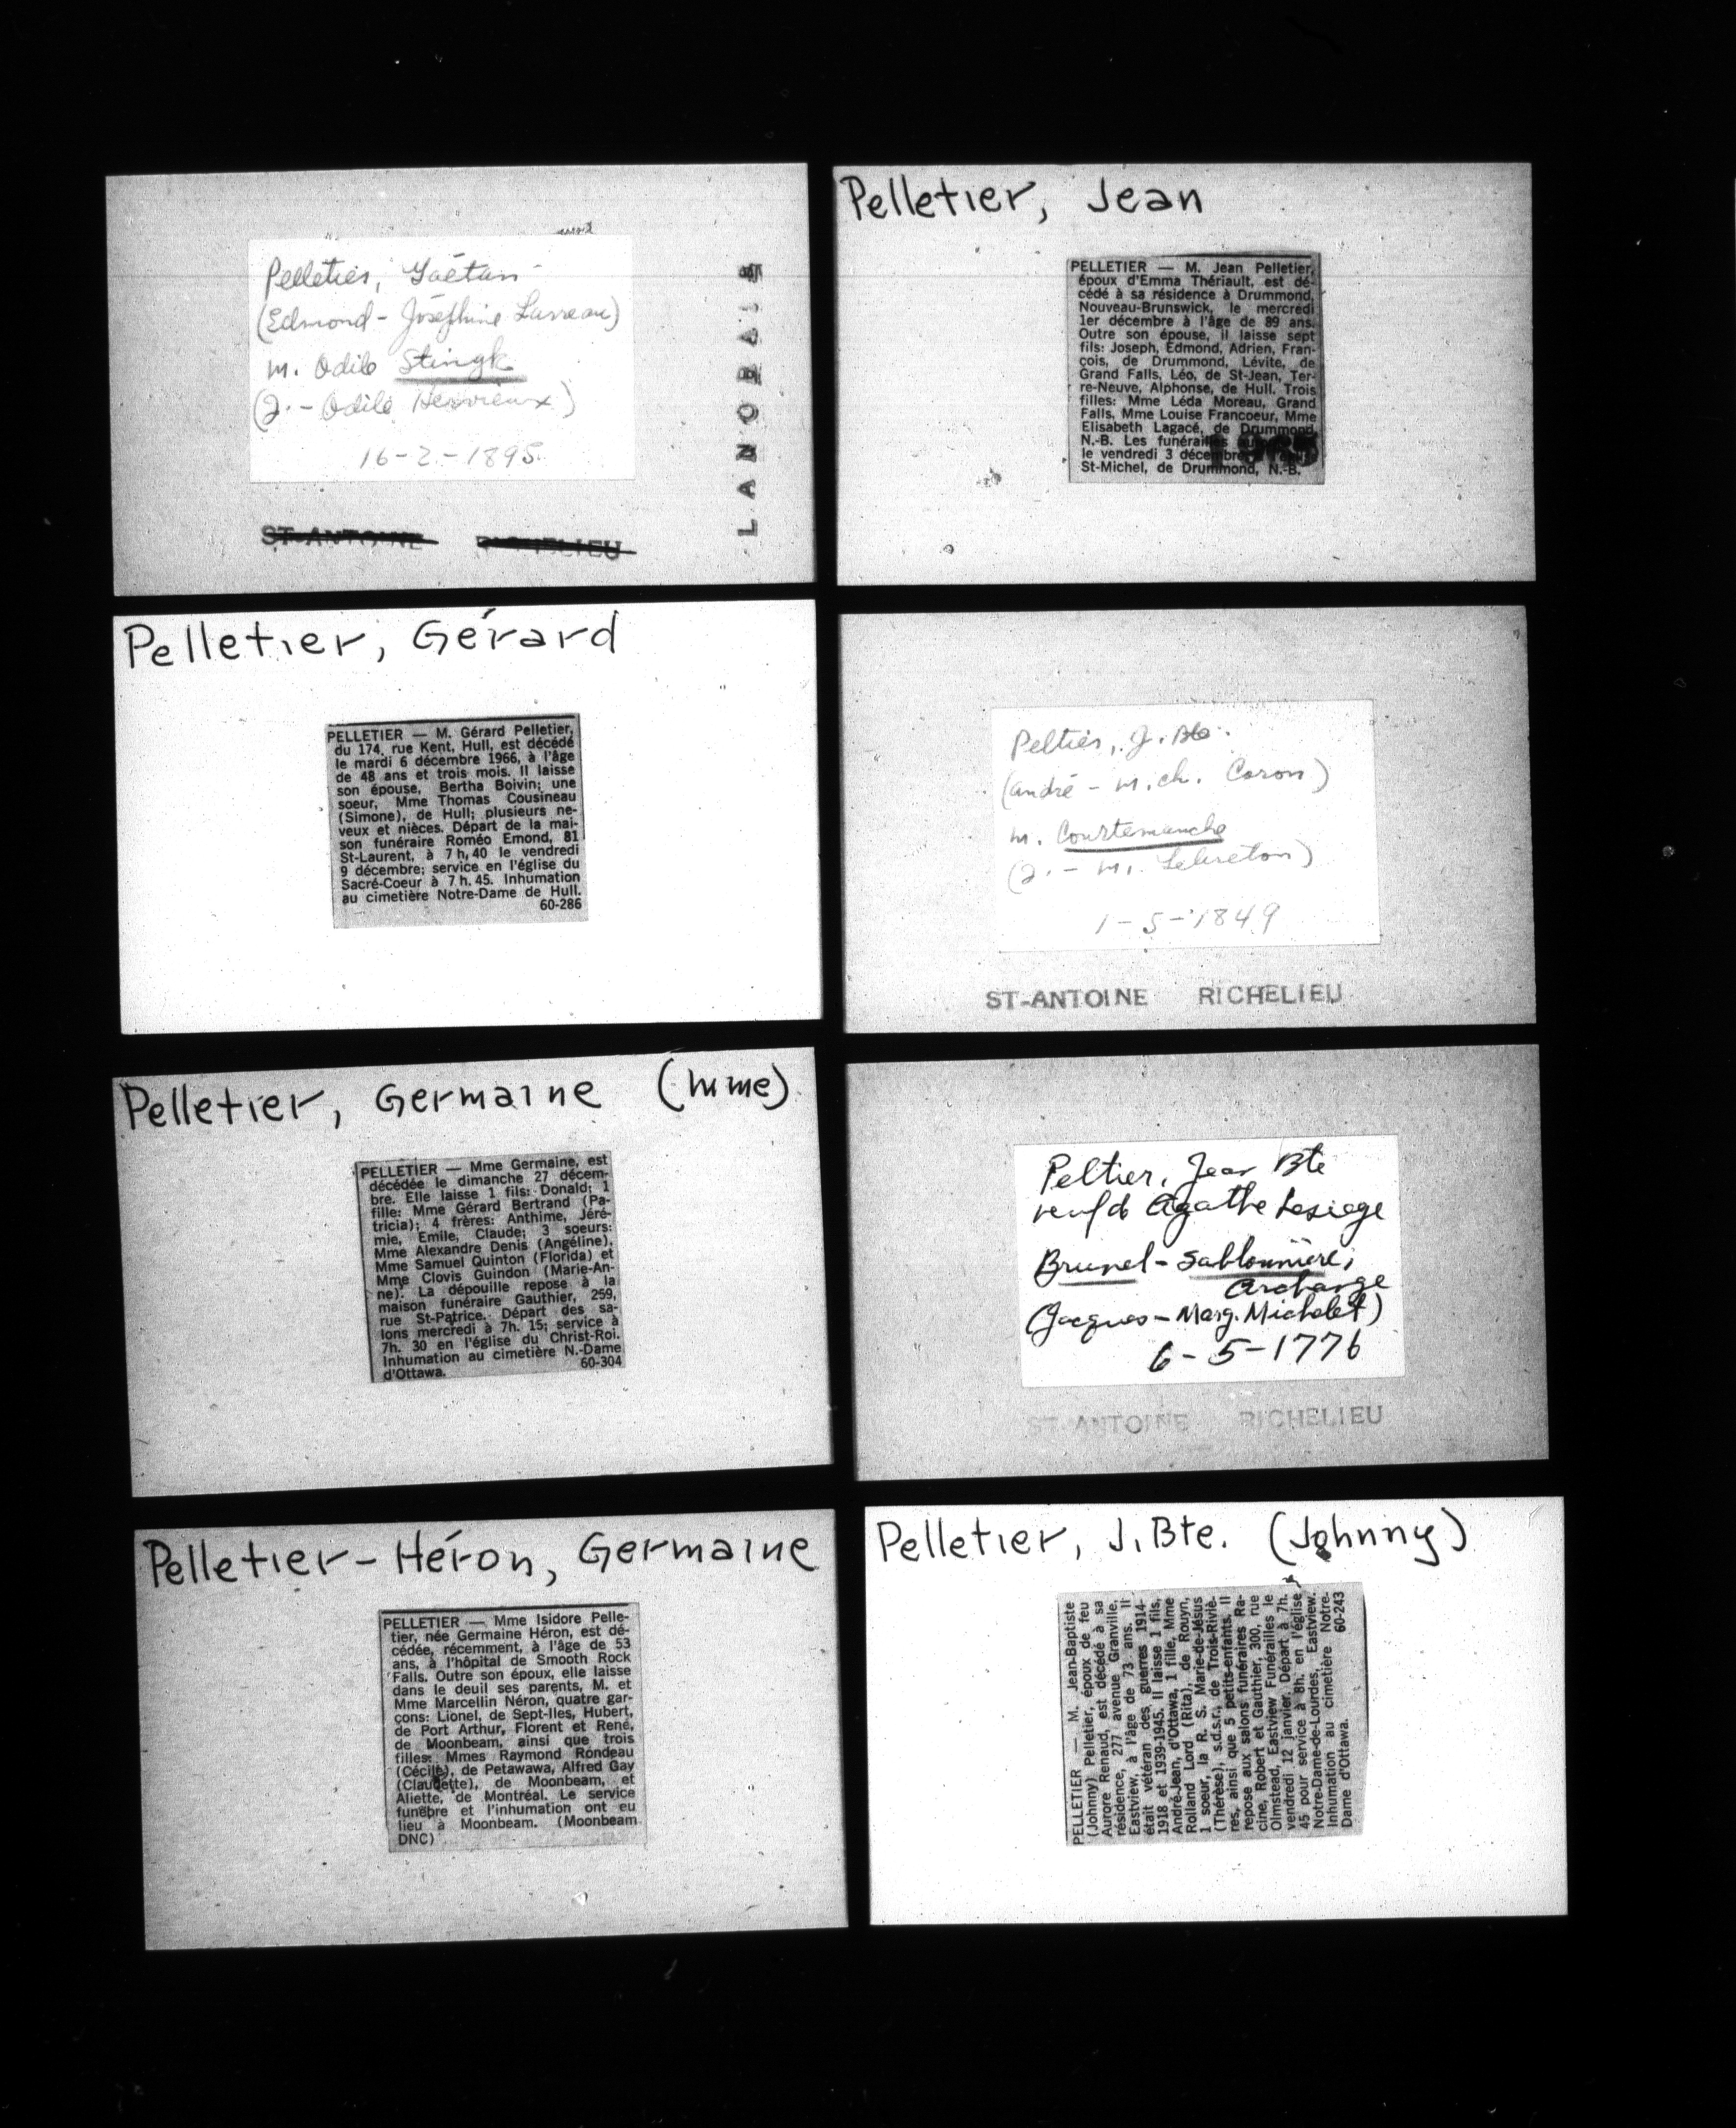 Pelletier, Gaétan
(Edmond - Joséphine Lavreau)
m. Odile Stingk
(J. - Odile Hervieux)
16-2-1895
ST-ANTOINE RICHELIEU
LANORAIE
Pelletier, Jean
PELLETIER — M. Jean Pelletier,
époux d'Emma Thériault, est dé-
cédé à sa résidence à Drummond,
Nouveau-Brunswick, le mercredi
1er décembre à l'âge de 89 ans.
Outre son épouse, il laisse sept
fils: Joseph, Edmond, Adrien, Fran-
çois, de Drummond, Lévite, de
Grand Falls, Léo, de St-Jean, Ter-
re-Neuve, Alphonse, de Hull. Trois
filles: Mme Léda Moreau, Grand
Falls, Mme Louise Francoeur, Mme
Elisabeth Lagacé, de Drummond,
N.-B. Les funérailles
le vendredi 3 décembre
St-Michel, de Drummond, N.-B.
Pelletier, Gérard
PELLETIER — M. Gérard Pelletier,
du 174, rue Kent, Hull, est décédé
le mardi 6 décembre 1966, à l'âge
de 48 ans et trois mois. Il laisse
son épouse, Bertha Boivin; une
soeur, Mme Thomas Cousineau
(Simone), de Hull; plusieurs ne-
veux et nièces. Départ de la mai-
son funéraire Roméo Emond, 81
St-Laurent, à 7 h. 40 le vendredi
9 décembre; service en l'église du
Sacré-Coeur à 7 h. 45. Inhumation
au cimetière Notre-Dame de Hull.
60-286
Peltier, J. Bte.
(André - M. Ch. Caron)
m. Courtemanche
(J. - M. Lebreton)
1-5-1849
ST-ANTOINE RICHELIEU
Pelletier, Germaine (Mme)
PELLETIER — Mme Germaine, est
décédée le dimanche 27 décem-
bre. Elle laisse 1 fils: Donald; 1
fille: Mme Gérard Bertrand (Pa-
tricia); 4 frères: Anthime, Jéré-
mie, Emile, Claude; 3 soeurs:
Mme Alexandre Denis (Angéline),
Mme Samuel Quinton (Florida) et
Mme Clovis Guindon (Marie-An-
ne). La dépouille repose à la
maison funéraire Gauthier, 259,
rue St-Patrice. Départ des sa-
lons mercredi à 7h. 15; service à
7h. 30 en l'église du Christ-Roi.
Inhumation au cimetière N.-Dame
d'Ottawa. 60-304
Peltier, Jean Bte
veuf d Agathe Lesiege
Brunel - Sablonnière,
Archange
(Jacques - Marg. Michelet)
6-5-1776
ST-ANTOINE RICHELIEU
Pelletier-Héron, Germaine
PELLETIER — Mme Isidore Pelle-
tier, née Germaine Héron, est dé-
cédée, récemment, à l'âge de 53
ans, à l'hôpital de Smooth Rock
Falls. Outre son époux, elle laisse
dans le deuil ses parents, M. et
Mme Marcellin Néron, quatre gar-
çons: Lionel, de Sept-Iles, Hubert,
de Port Arthur, Florent et René,
de Moonbeam, ainsi que trois
filles: Mmes Raymond Rondeau
(Cécile), de Petawawa, Alfred Gay
(Claudette), de Moonbeam, et
Aliette, de Montréal. Le service
funèbre et l'inhumation ont eu
lieu à Moonbeam. (Moonbeam
DNC)
Pelletier, J. Bte. (Johnny)
PELLETIER — M. Jean-Baptiste
(Johnny) Pelletier, époux de feu
Aurore Renaud, est décédé à sa
résidence, 277 avenue Granville,
Eastview, à l'âge de 73 ans. Il
était vétéran des guerres 1914-
1918 et 1939-1945. Il laisse 1 fils,
André-Jean, d'Ottawa, 1 fille, Mme
Rolland Lord (Rita), de Rouyn,
1 soeur, la R. S. Marie-de-Jésus
(Thérèse), s.d.s.r., de Trois-Riviè-
res, ainsi que 5 petits-enfants. Il
repose aux salons funéraires Ra-
cine, Robert et Gauthier, 300, rue
Olmstead, Eastview. Funérailles le
vendredi 12 janvier. Départ à 7h.
45 pour service à 8h. en l'église
Notre-Dame-de-Lourdes, Eastview.
Inhumation au cimetière Notre-
Dame d'Ottawa. 60-243